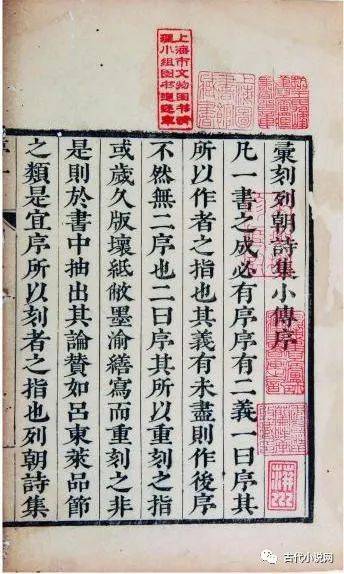 彙刻列朝詩集小傳序
凡一書之成必有序序有二義一曰序其
所以作者之指也其義有未盡則作後序
不然無二序也二曰序其所以重刻之指
或歲久版壞紙敝墨渝繕寫而重刻之非
是則於書中抽出其論賛如呂東萊品節
之類是宜序所以刻者之指也列朝詩集
序 一
上海市文物图书清
理小组图书遴選章
古代小说网